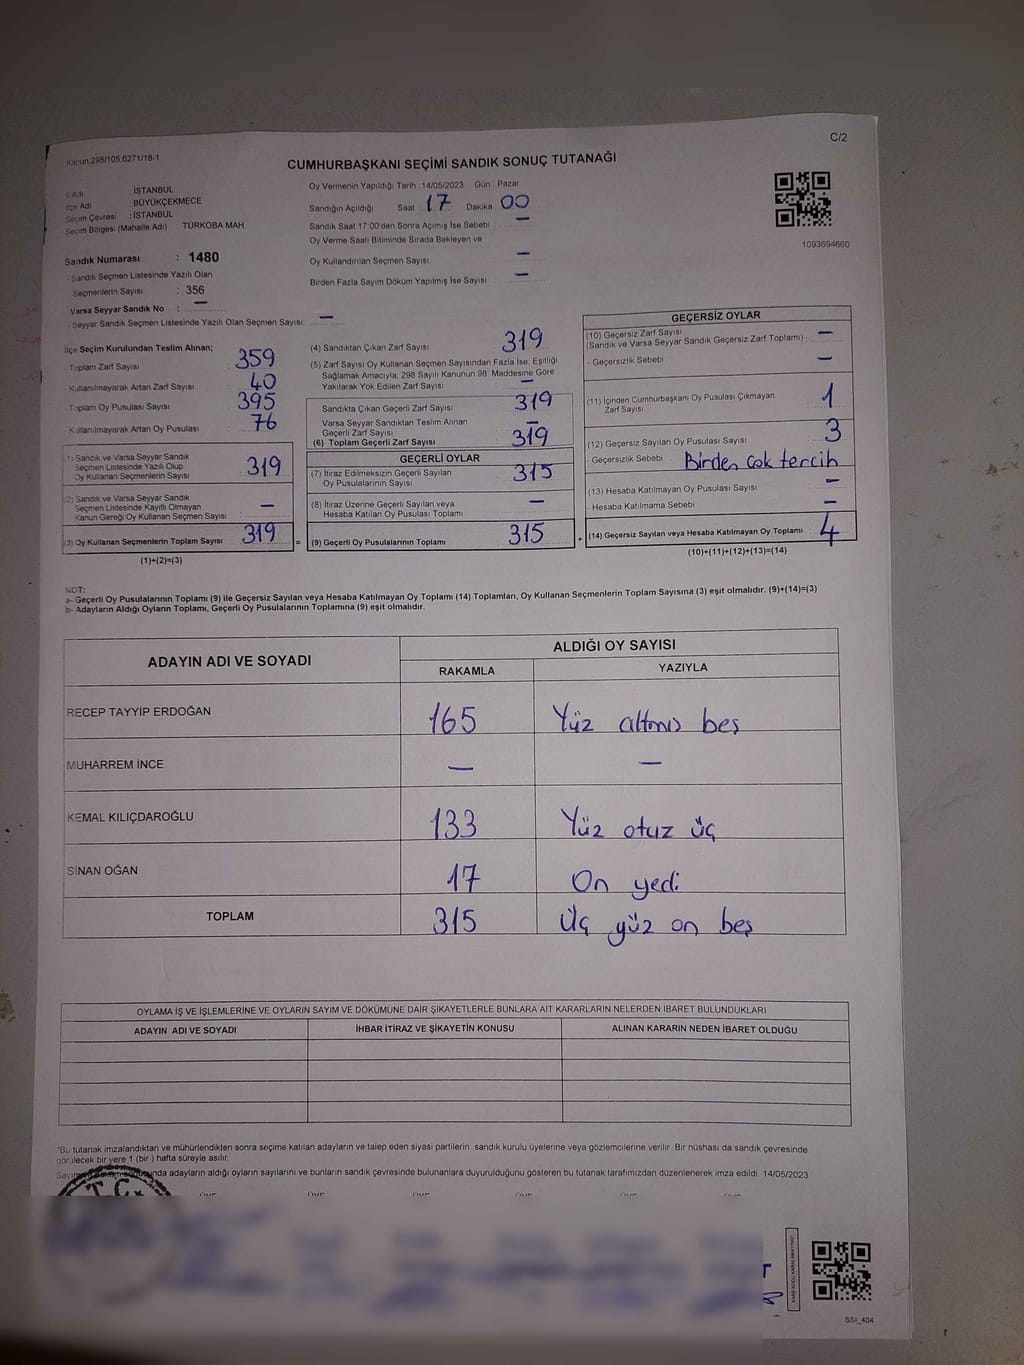 C/2
Kanun:298/105;6271/18-1
CUMHURBAŞKANI SEÇİMİ SANDIK SONUÇ TUTANAĞI
İl Adı : İSTANBUL
İlçe Adı : BÜYÜKÇEKMECE
Seçim Çevresi : İSTANBUL
Seçim Bölgesi (Mahalle Adı) : TÜRKOBA MAH.
Oy Vermenin Yapıldığı Tarih : 14/05/2023 Gün : Pazar
Sandığın Açıldığı Saat 17 Dakika 00
Sandık Saat 17:00'den Sonra Açımış İse Sebebi : —
Oy Verme Saati Bitiminde Sırada Bekleyen ve
Oy Kullandırılan Seçmen Sayısı —
Birden Fazla Sayım Döküm Yapılmış İse Sayısı —
1093694660
Sandık Numarası : 1480
- Sandık Seçmen Listesinde Yazılı Olan
Seçmenlerin Sayısı : 356
Varsa Seyyar Sandık No : —
- Seyyar Sandık Seçmen Listesinde Yazılı Olan Seçmen Sayısı: —
İlçe Seçim Kurulundan Teslim Alınan;
- Toplam Zarf Sayısı : 359
- Kullanılmayarak Artan Zarf Sayısı : 40
- Toplam Oy Pusulası Sayısı : 395
- Kullanılmayarak Artan Oy Pusulası : 76
(1) Sandık ve Varsa Seyyar Sandık
Seçmen Listesinde Yazılı Olup
Oy Kullanan Seçmenlerin Sayısı 319
(2) Sandık ve Varsa Seyyar Sandık
Seçmen Listesinde Kayıtlı Olmayan
Kanun Gereği Oy Kullanan Seçmen Sayısı —
(3) Oy Kullanan Seçmenlerin Toplam Sayısı 319
(1)+(2)=(3)
(4) Sandıktan Çıkan Zarf Sayısı 319
(5) Zarf Sayısı Oy Kullanan Seçmen Sayısından Fazla İse, Eşitliği
Sağlamak Amacıyla, 298 Sayılı Kanunun 98. Maddesine Göre
Yakılarak Yok Edilen Zarf Sayısı —
Sandıkta Çıkan Geçerli Zarf Sayısı 319
Varsa Seyyar Sandıktan Teslim Alınan
Geçerli Zarf Sayısı —
(6) Toplam Geçerli Zarf Sayısı 319
GEÇERLİ OYLAR
(7) İtiraz Edilmeksizin Geçerli Sayılan
Oy Pusulalarının Sayısı 315
(8) İtiraz Üzerine Geçerli Sayılan veya
Hesaba Katılan Oy Pusulası Toplamı —
= (9) Geçerli Oy Pusulalarının Toplamı 315
GEÇERSİZ OYLAR
(10) Geçersiz Zarf Sayısı
(Sandık ve Varsa Seyyar Sandık Geçersiz Zarf Toplamı) —
- Geçersizlik Sebebi —
(11) İçinden Cumhurbaşkanı Oy Pusulası Çıkmayan
Zarf Sayısı 1
(12) Geçersiz Sayılan Oy Pusulası Sayısı 3
- Geçersizlik Sebebi Birden çok tercih
(13) Hesaba Katılmayan Oy Pusulası Sayısı —
- Hesaba Katılmama Sebebi —
+ (14) Geçersiz Sayılan veya Hesaba Katılmayan Oy Toplamı 4
(10)+(11)+(12)+(13)=(14)
NOT:
a- Geçerli Oy Pusulalarının Toplamı (9) ile Geçersiz Sayılan veya Hesaba Katılmayan Oy Toplamı (14) Toplamları, Oy Kullanan Seçmenlerin Toplam Sayısına (3) eşit olmalıdır. (9)+(14)=(3)
b- Adayların Aldığı Oyların Toplamı, Geçerli Oy Pusulalarının Toplamına (9) eşit olmalıdır.
ADAYIN ADI VE SOYADI ALDIĞI OY SAYISI
RAKAMLA YAZIYLA
RECEP TAYYİP ERDOĞAN 165 Yüz altmış beş
MUHARREM İNCE — —
KEMAL KILIÇDAROĞLU 133 Yüz otuz üç
SİNAN OĞAN 17 On yedi
TOPLAM 315 Üç yüz on beş
OYLAMA İŞ VE İŞLEMLERİNE VE OYLARIN SAYIM VE DÖKÜMÜNE DAİR ŞİKAYETLERLE BUNLARA AİT KARARLARIN NELERDEN İBARET BULUNDUKLARI
ADAYIN ADI VE SOYADI İHBAR İTİRAZ VE ŞİKAYETİN KONUSU ALINAN KARARIN NEDEN İBARET OLDUĞU
*Bu tutanak imzalandıktan ve mühürlendikten sonra seçime katılan adayların ve talep eden siyasi partilerin sandık kurulu üyelerine veya gözlemcilerine verilir. Bir nüshası da sandık çevresinde
görülecek bir yere 1 (bir ) hafta süreyle asılır.
adayların aldığı oyların sayılarını ve bunların sandık çevresinde bulunanlara duyurulduğunu gösteren bu tutanak tarafımızdan düzenlenerek imza edildi. 14/05/2023
T.C.
SSI_404